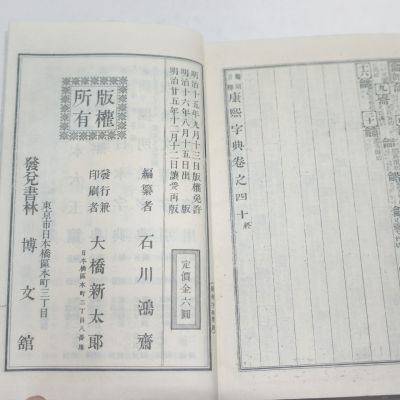 康熙字典卷之四十終
明治十五年九月十三日版權免許
明治十六年八月十五日出版
明治廿五年十二月十二日讓受再版
定價金六圓
編纂者 石川鴻齋
發行兼印刷者 大橋新太郎
日本橋區本町三丁目八番地
版權所有
東京市日本橋區本町三丁目
發兌書林 博文舘